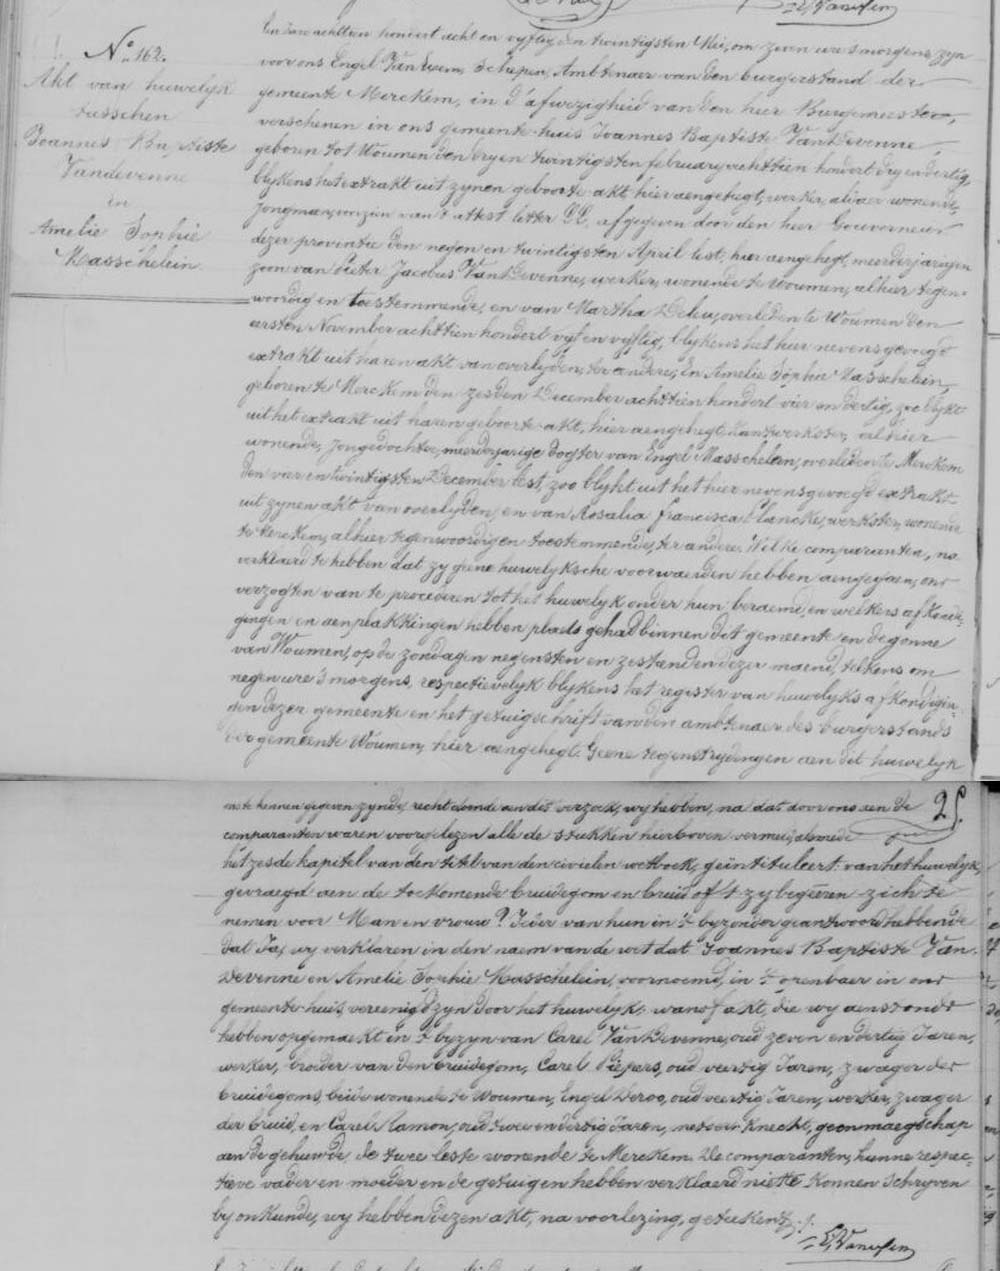 E. Vanuxem
N.° 162.
Akt van huwelyk
tusschen
Joannes Baptiste
Vandevenne
en
Amelie Sophie
Masschelein.
achttien hondert acht en vyftig den twintigsten Mei, om zeven ure s'morgens, zyn
voor ons Engel Schepen, Ambtenaer van den burgerstand der
gemeente Merckem, in d'afwezigheid van den heer Burgemeester,
verschenen in ons gemeente-huis Joannes Baptiste VanDevenne,
geboren tot Woumen den dry en twintigsten february achttien hondert dry en dertig,
blykens het extrakt uit zynen geboorte-akt, hier aengehegt, werker, alhier wonende,
Jongman, van 't attest letter afgegeven door den heer Gouverneur
dezer provintie den negen en twintigsten April lest, hier aengehegt, meerderjarigen
zoon van Pieter Jacobus VanDevenne, werker, wonende te Woumen, alhier tegen-
woordig en toestemmende, en van Martha Deleu, overleden te Woumen den
eersten November achttien hondert vyf en vyftig, blykens het hier nevensgevoegd
extrakt uit haren akt van overlyden, ter andere, En Amelie Sophie Masschelein,
geboren te Merckem den zesden December achttien hondert vier en dertig, zoo blykt
uit het extrakt uit haren geboorte-akt, hier aengehegt, kantwerkster, alhier
wonende, Jongedochter, meerderjarige dogter van Engel Masschelein, overleden te Merckem
den vier en twintigsten December lest, zoo blykt uit het hier nevensgevoegd extrakt
uit zynen akt van overlyden, en van Rosalia francisca Plancke, werkster, wonende
te Merckem, alhier tegenwoordig en toestemmende, ter andere. Welke comparanten, na
verklaerd te hebben dat zy geene huwelyksche voorwaerden hebben aengegaen, ons
verzogten van te procederen tot het huwelyk onder hun beraemd, en welkers afkondi-
gingen en aenplakkingen hebben plaets gehad binnen dit gemeente en degonne
van Woumen, op de zondagen negensten en zestienden dezer maend, telkens om
negen ure s'morgens, respectievelyk blykens het register van huwelyks afkondigin-
gen dezer gemeente en het getuigschrift van den ambtenaer des burgerstands
gemeente Woumen, hier aengehegt. Geene tegenstrydingen aen dit huwelyk
25.
te kennen gegeven zynde, recht doende aen dit verzoek, wy hebben, na dat door ons aen de
comparanten waren voorgelezen alle de stukken hierboven vermeld, alsmede
het zesde kapitel van den titel van den civielen wetboek, geïntituleert: van het huwelyk,
gevraegd aen de toekomende bruidegom en bruid of 't zy begeren zich te
nemen voor Man en vrouw? Ider van hun in 't byzonder geantwoord hebbende
dat Ja, wy verklaren in den naem van de wet dat Joannes Baptiste Van-
Devenne en Amelie Sophie Masschelein, voornoemd, in 't openbaer in ons
gemeente-huis, vereenigd zyn door het huwelyk; wanof akt, die wy aenstonds
hebben opgemaekt in 't byzyn van Carel VanDevenne, oud zeven en dertig Jaren,
werker, broeder van den bruidegom, Carel Piepers, oud veertig Jaren, zwager der
bruidegoms, beide wonende te Woumen, Engel Deroo, oud veertig Jaren, werker, zwager
der bruid, en Carel Ramon, oud twee en dertig Jaren, knecht, geen maegschap
aen de gehuwde, de twee leste wonende te Merckem. De comparanten, hunne respec-
tieve vader en moeder en de getuigen hebben verklaerd niet te konnen schryven
by onkunde, wy hebben dezen akt, na voorlezing, geteekend.
E. Vanuxem